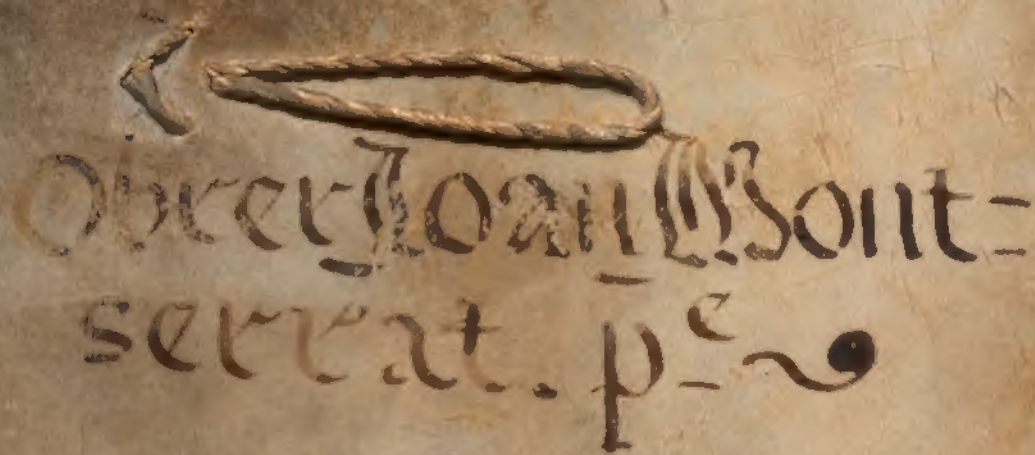 Obrer Joan Mont=
serrat. p^e